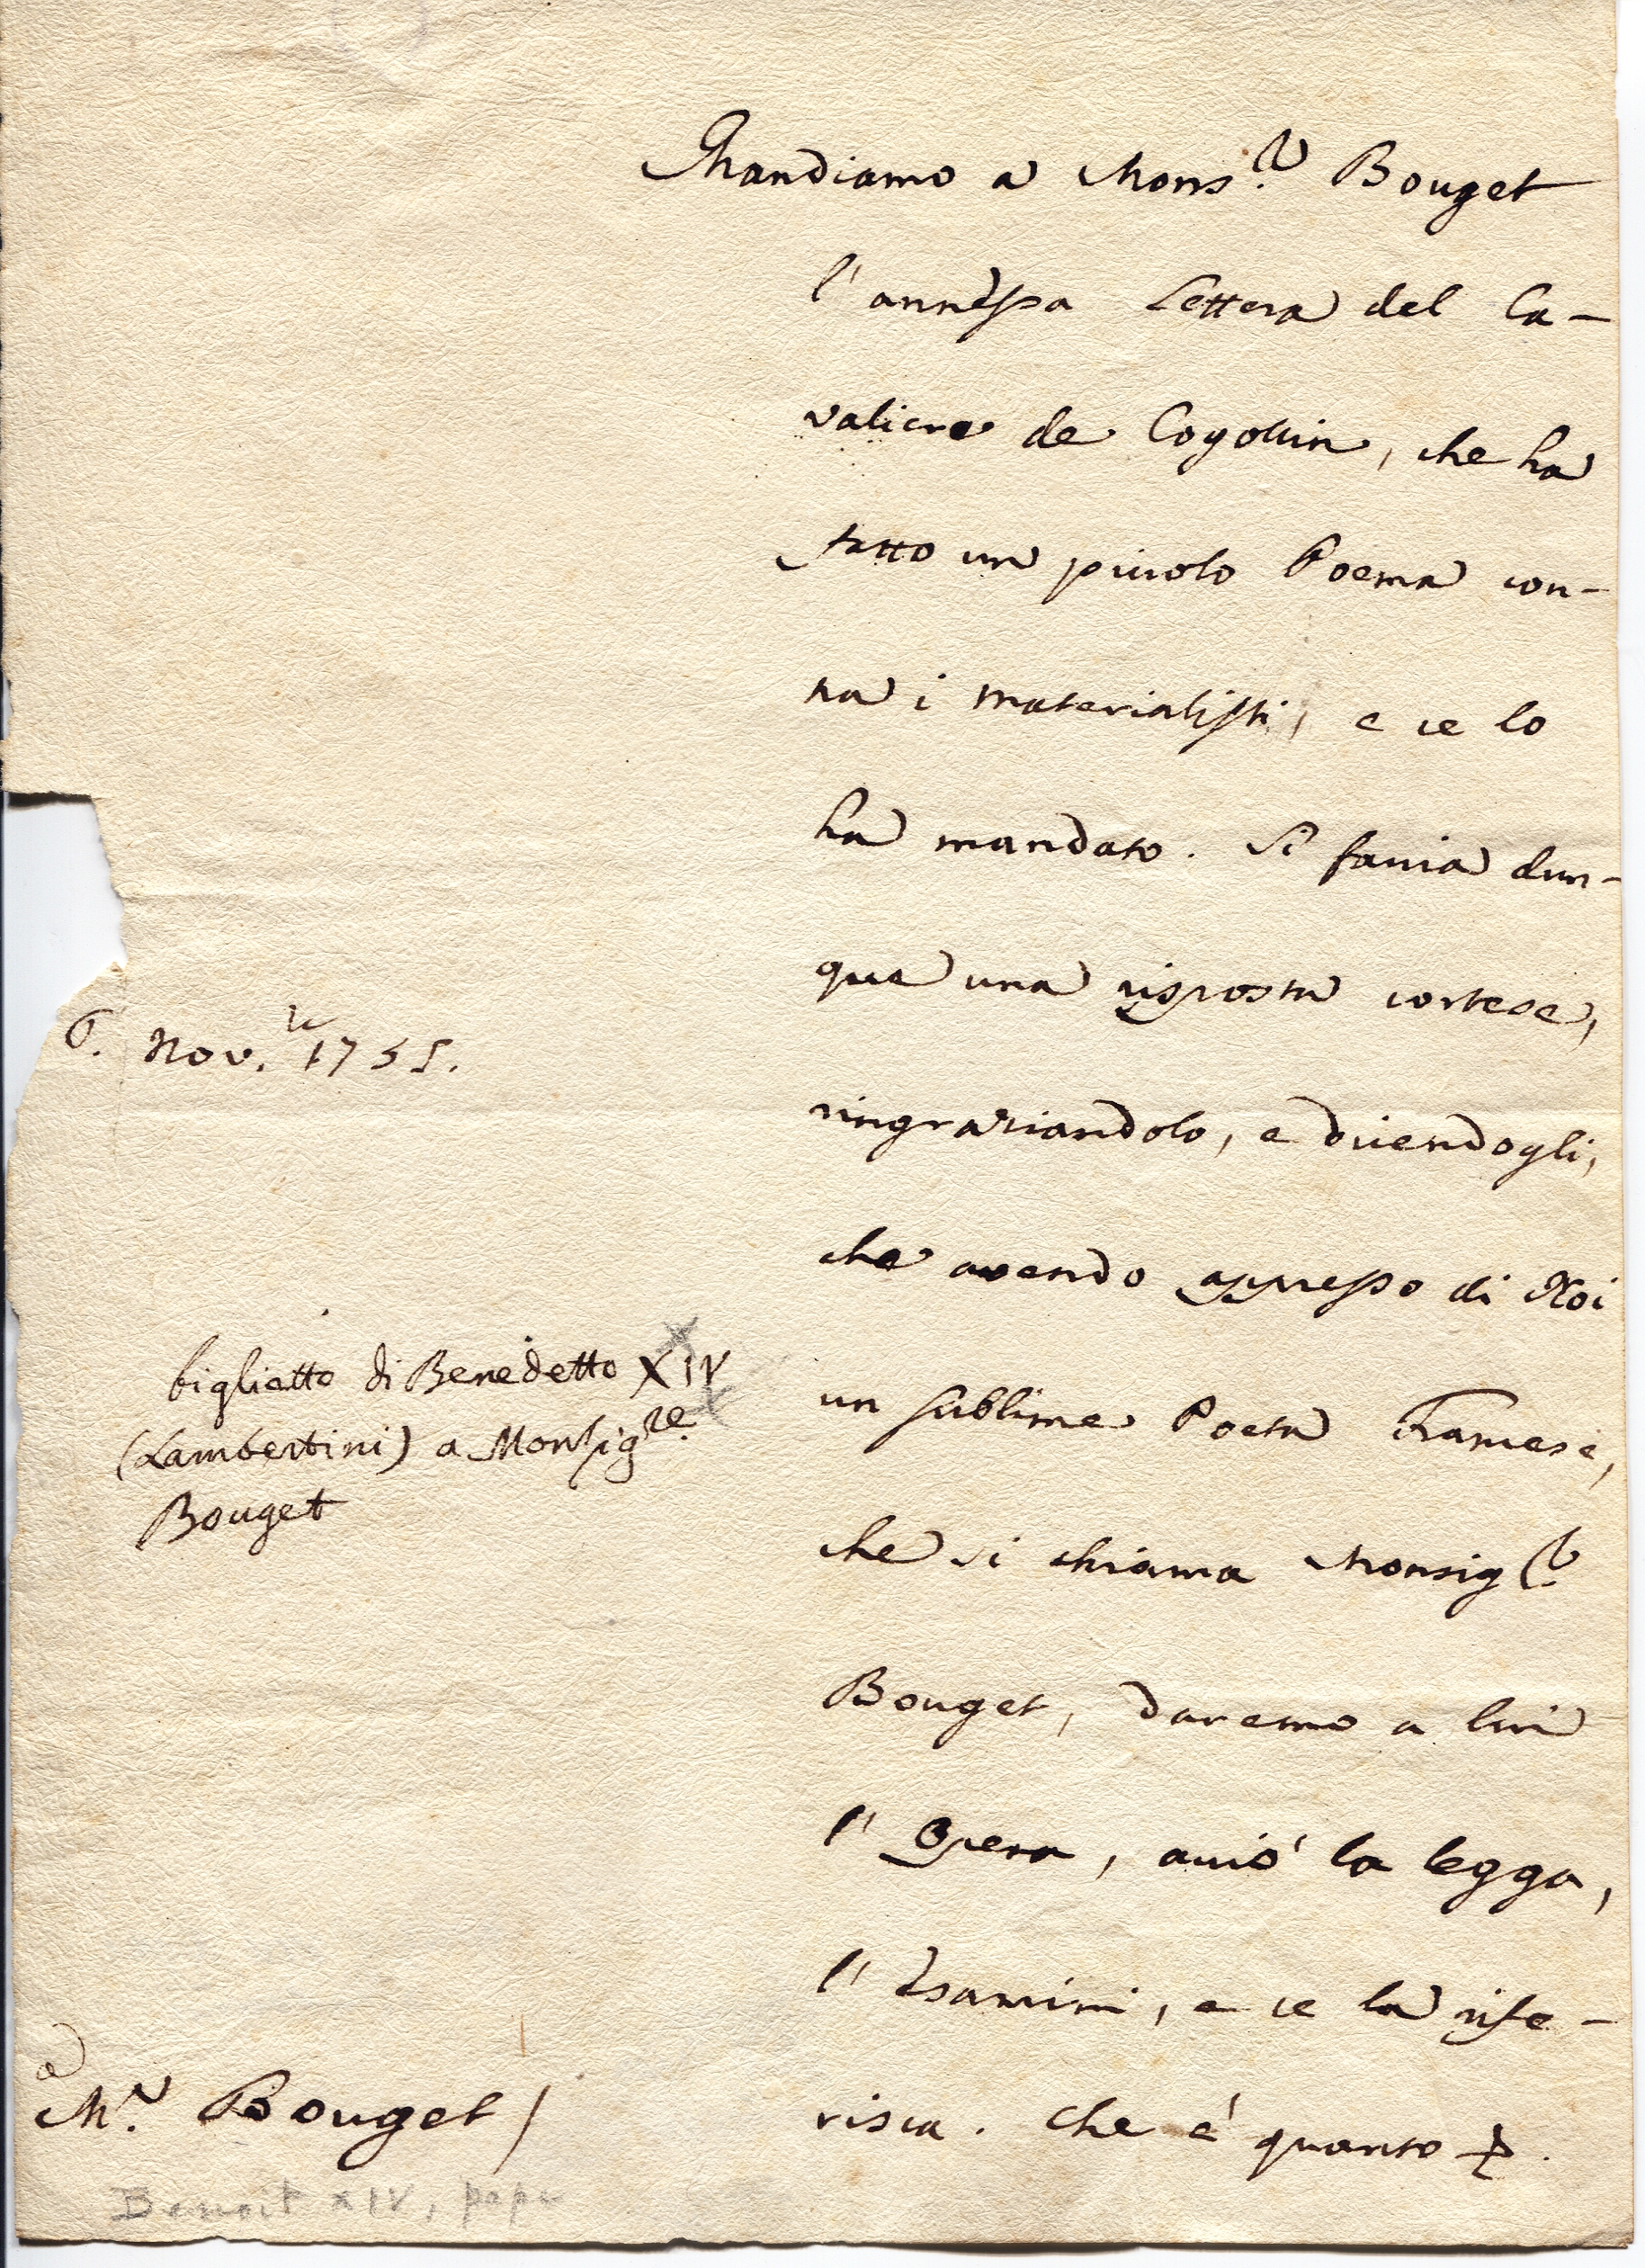 Mandiamo a Mons.r Bouget
l'annessa Lettera del Ca-
valiere de Cogollin, che ha
fatto un piccolo Poema con-
tra i materialisti, e ce lo
ha mandato. Si faccia dun-
que una risposta cortese,
6. Nov.re 1755.
ringraziandolo, e dicendogli,
che avendo appresso di Noi
biglietto di Benedetto XIV
(Lambertini) a Monsig.re
Bouget
un sublime Poeta Francese,
che si chiama Monsig.r
Bouget, daremo a lui
l'Opera, acciò la legga,
l'Esamini, e ce la rife-
risca. Che è quanto
a
M.r Bouget /
Benoit XIV, pape